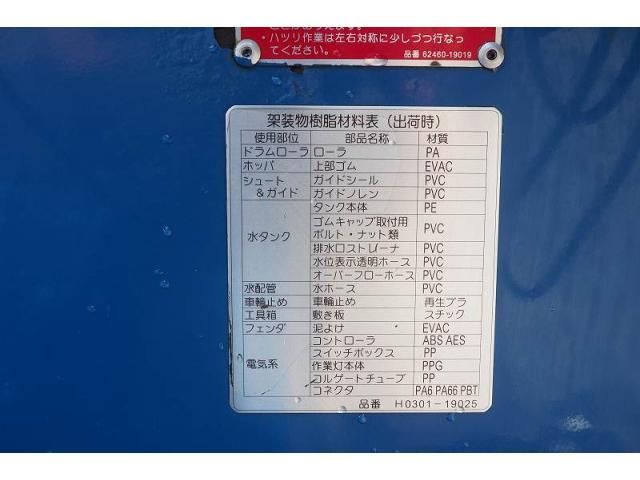 ことがあります。
・ハツリ作業は左右対称に少しづつ行なっ
てください。
品番 62460-19019
架装物樹脂材料表(出荷時)
使用部位 部品名称 材質
ドラムローラ ローラ PA
ホッパ 上部ゴム EVAC
シュート ガイドシール PVC
&ガイド ガイドノレン PVC
タンク本体 PE
ゴムキャップ取付用
ボルト・ナット類 PVC
水タンク
排水口ストレーナ PVC
水位表示透明ホース PVC
オーバーフローホース PVC
水配管 水ホース PVC
車輪止め 車輪止め 再生プラ
工具箱 敷き板 スチック
フェンダ 泥よけ EVAC
コントローラ ABS AES
スイッチボックス PP
電気系 作業灯本体 PPG
コルゲートチューブ PP
コネクタ PA6 PA66 PBT
品番 H0301-19025